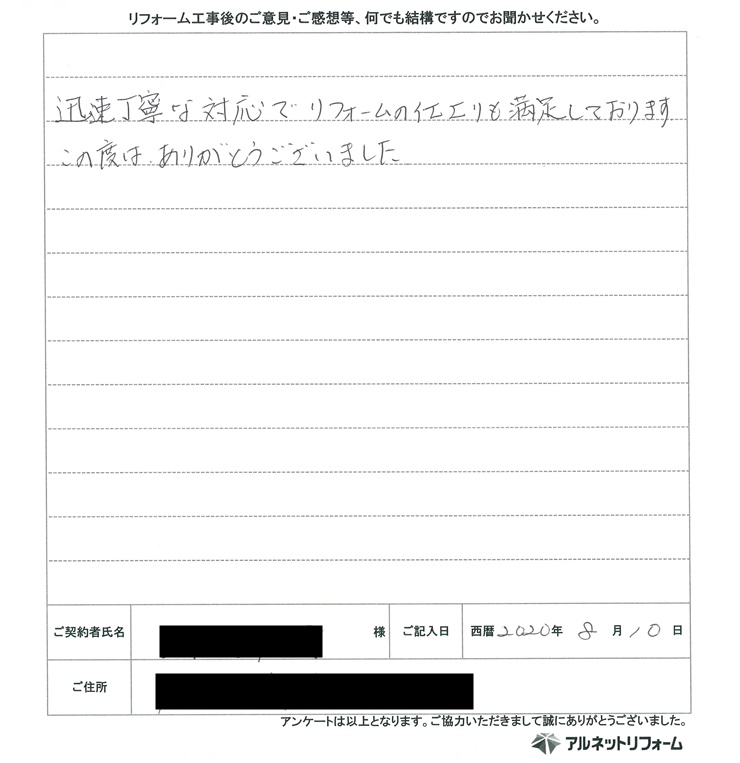 リフォーム工事後のご意見・ご感想等、何でも結構ですのでお聞かせください。
迅速丁寧な対応でリフォームの仕上りも満足しております
この度は、ありがとうございました
ご契約者氏名 様 ご記入日 西暦2020年 8月10日
ご住所
アンケートは以上となります。ご協力いただきまして誠にありがとうございました。
アルネットリフォーム